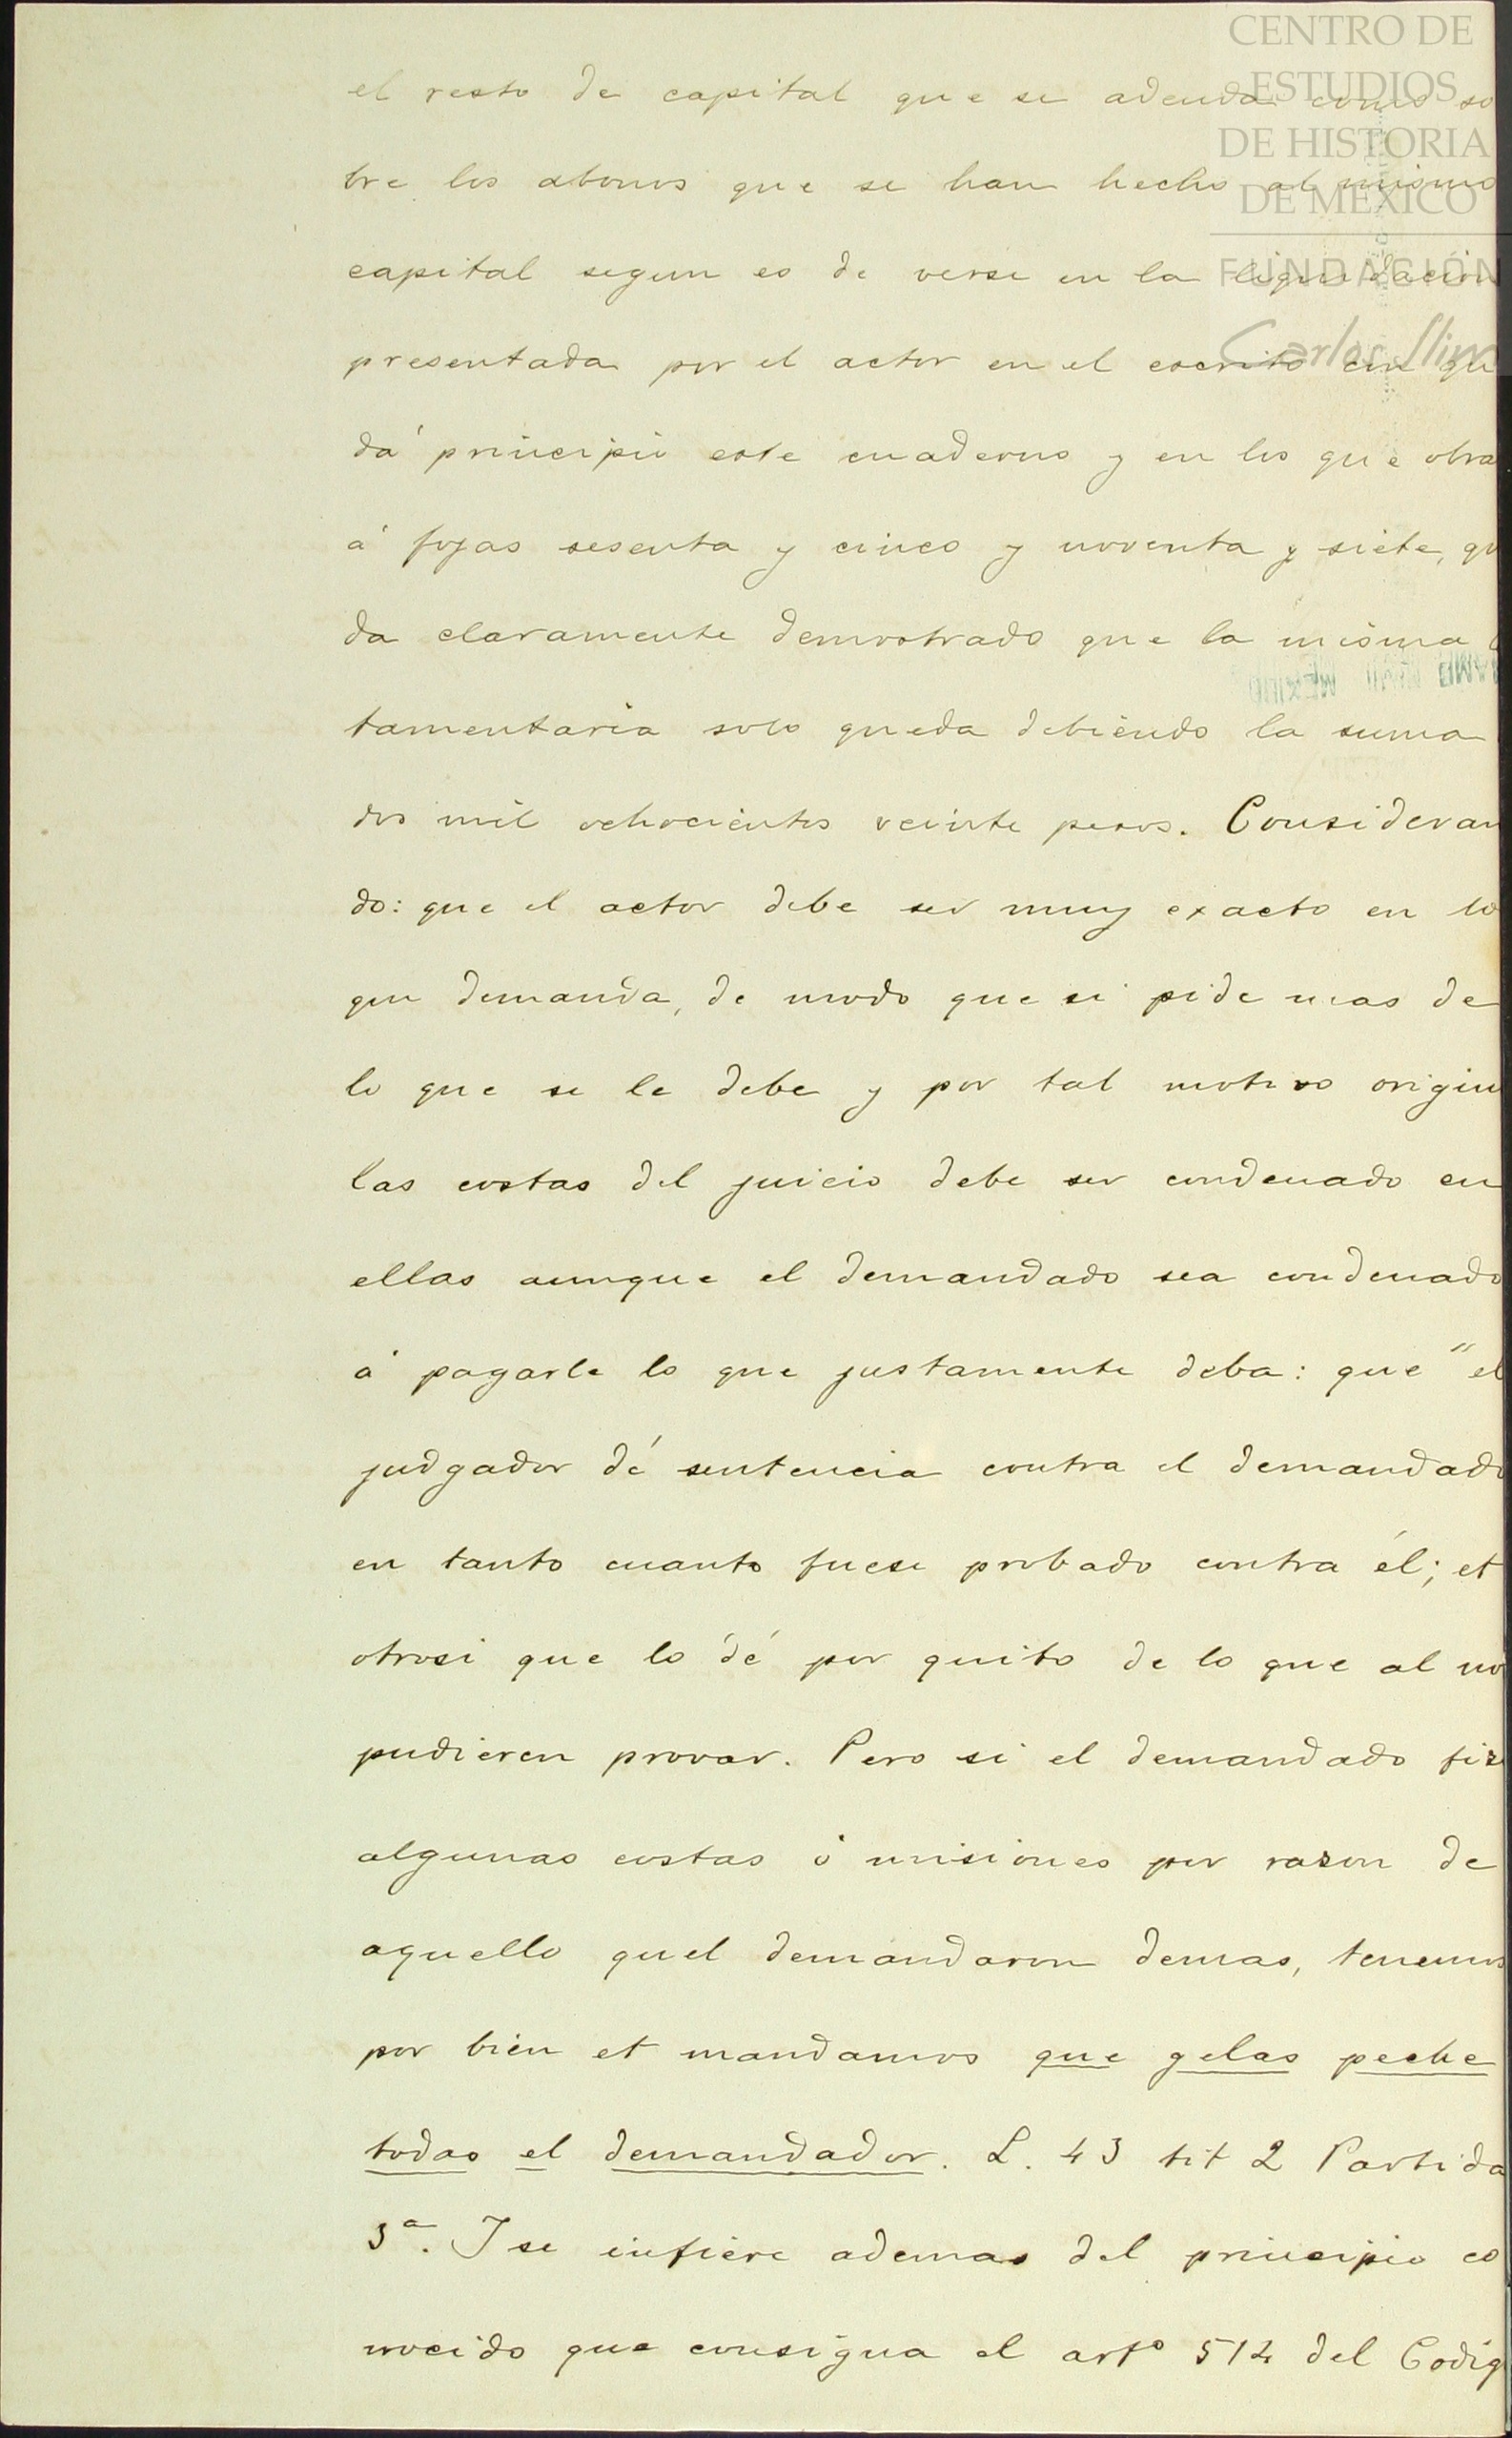 CENTRO DE
ESTUDIOS
DE HISTORIA
DE MÉXICO
FUNDACIÓN
Carlos Slim
el resto de capital que se adeuda como so
bre los abonos que se han hecho al mismo
capital segun es de verse en la liquidacion
presentada por el actor en el escrito con qu
dá principio este cuaderno y en los que obra
á fojas sesenta y cinco y noventa y siete, qu
da claramente demostrado que la misma
tamentaria solo queda debiendo la suma
dos mil ochocientos veinte pesos. Consideran
do: que el actor debe ser muy exacto en lo
que demanda, de modo que si pide mas de
lo que se le debe y por tal motivo origin
las costas del juicio debe ser condenado en
ellas aunque el demandado sea condenado
á pagarle lo que justamente deba: que "el
judgador dé sentencia contra el demandado
en tanto cuanto fuese probado contra él; et
otrosi que lo dé por quito de lo que al no
pudieren provar. Pero si el demandado fiz
algunas costas ó misiones por razon de
aquello quel demandaron demas, tenemos
por bien et mandamos que gelas peche
todas el demandador. L. 43 tit 2 Partida
3ª. I se infiere ademas del principio co
nocido que consigna el artº 514 del Codig